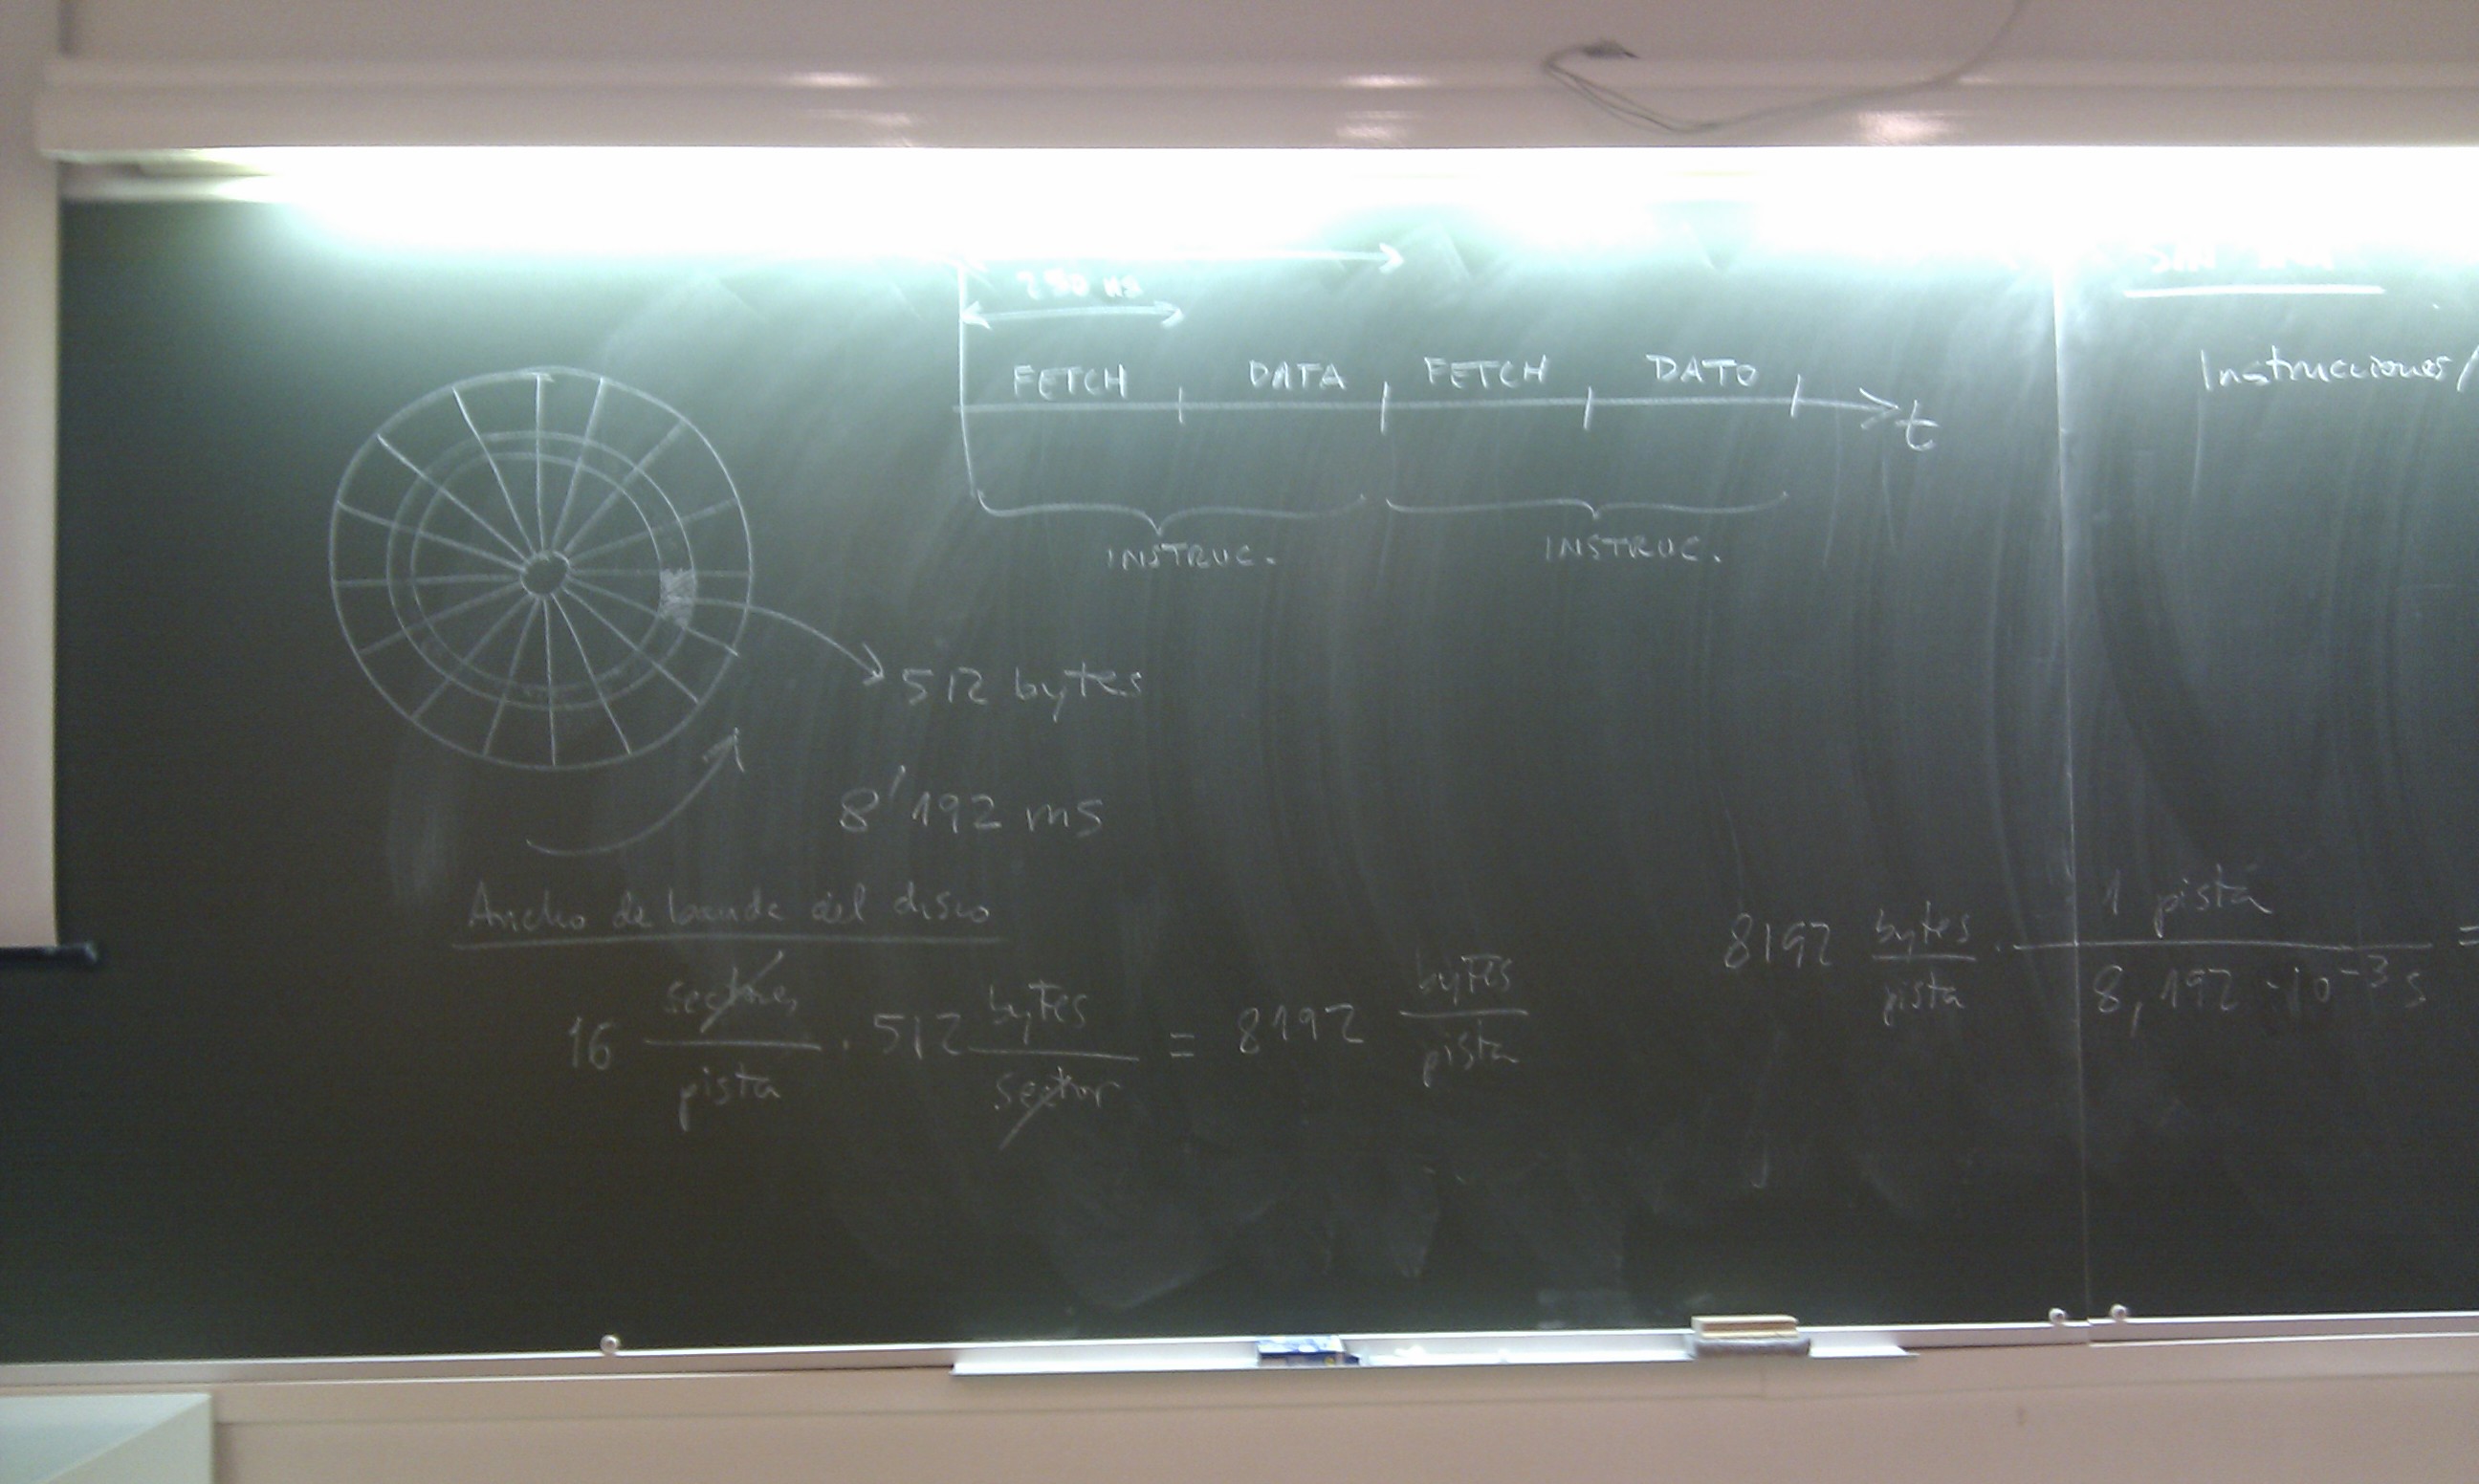 FETCH DATA FETCH DATO
t
INSTRUC. INSTRUC.
512 bytes
8'192 ms
Ancho de banda del disco
16 sectores/pista · 512 bytes/sector = 8192 bytes/pista
8192 bytes/pista · 1 pista/8,192·10⁻³ s =
Instrucciones/